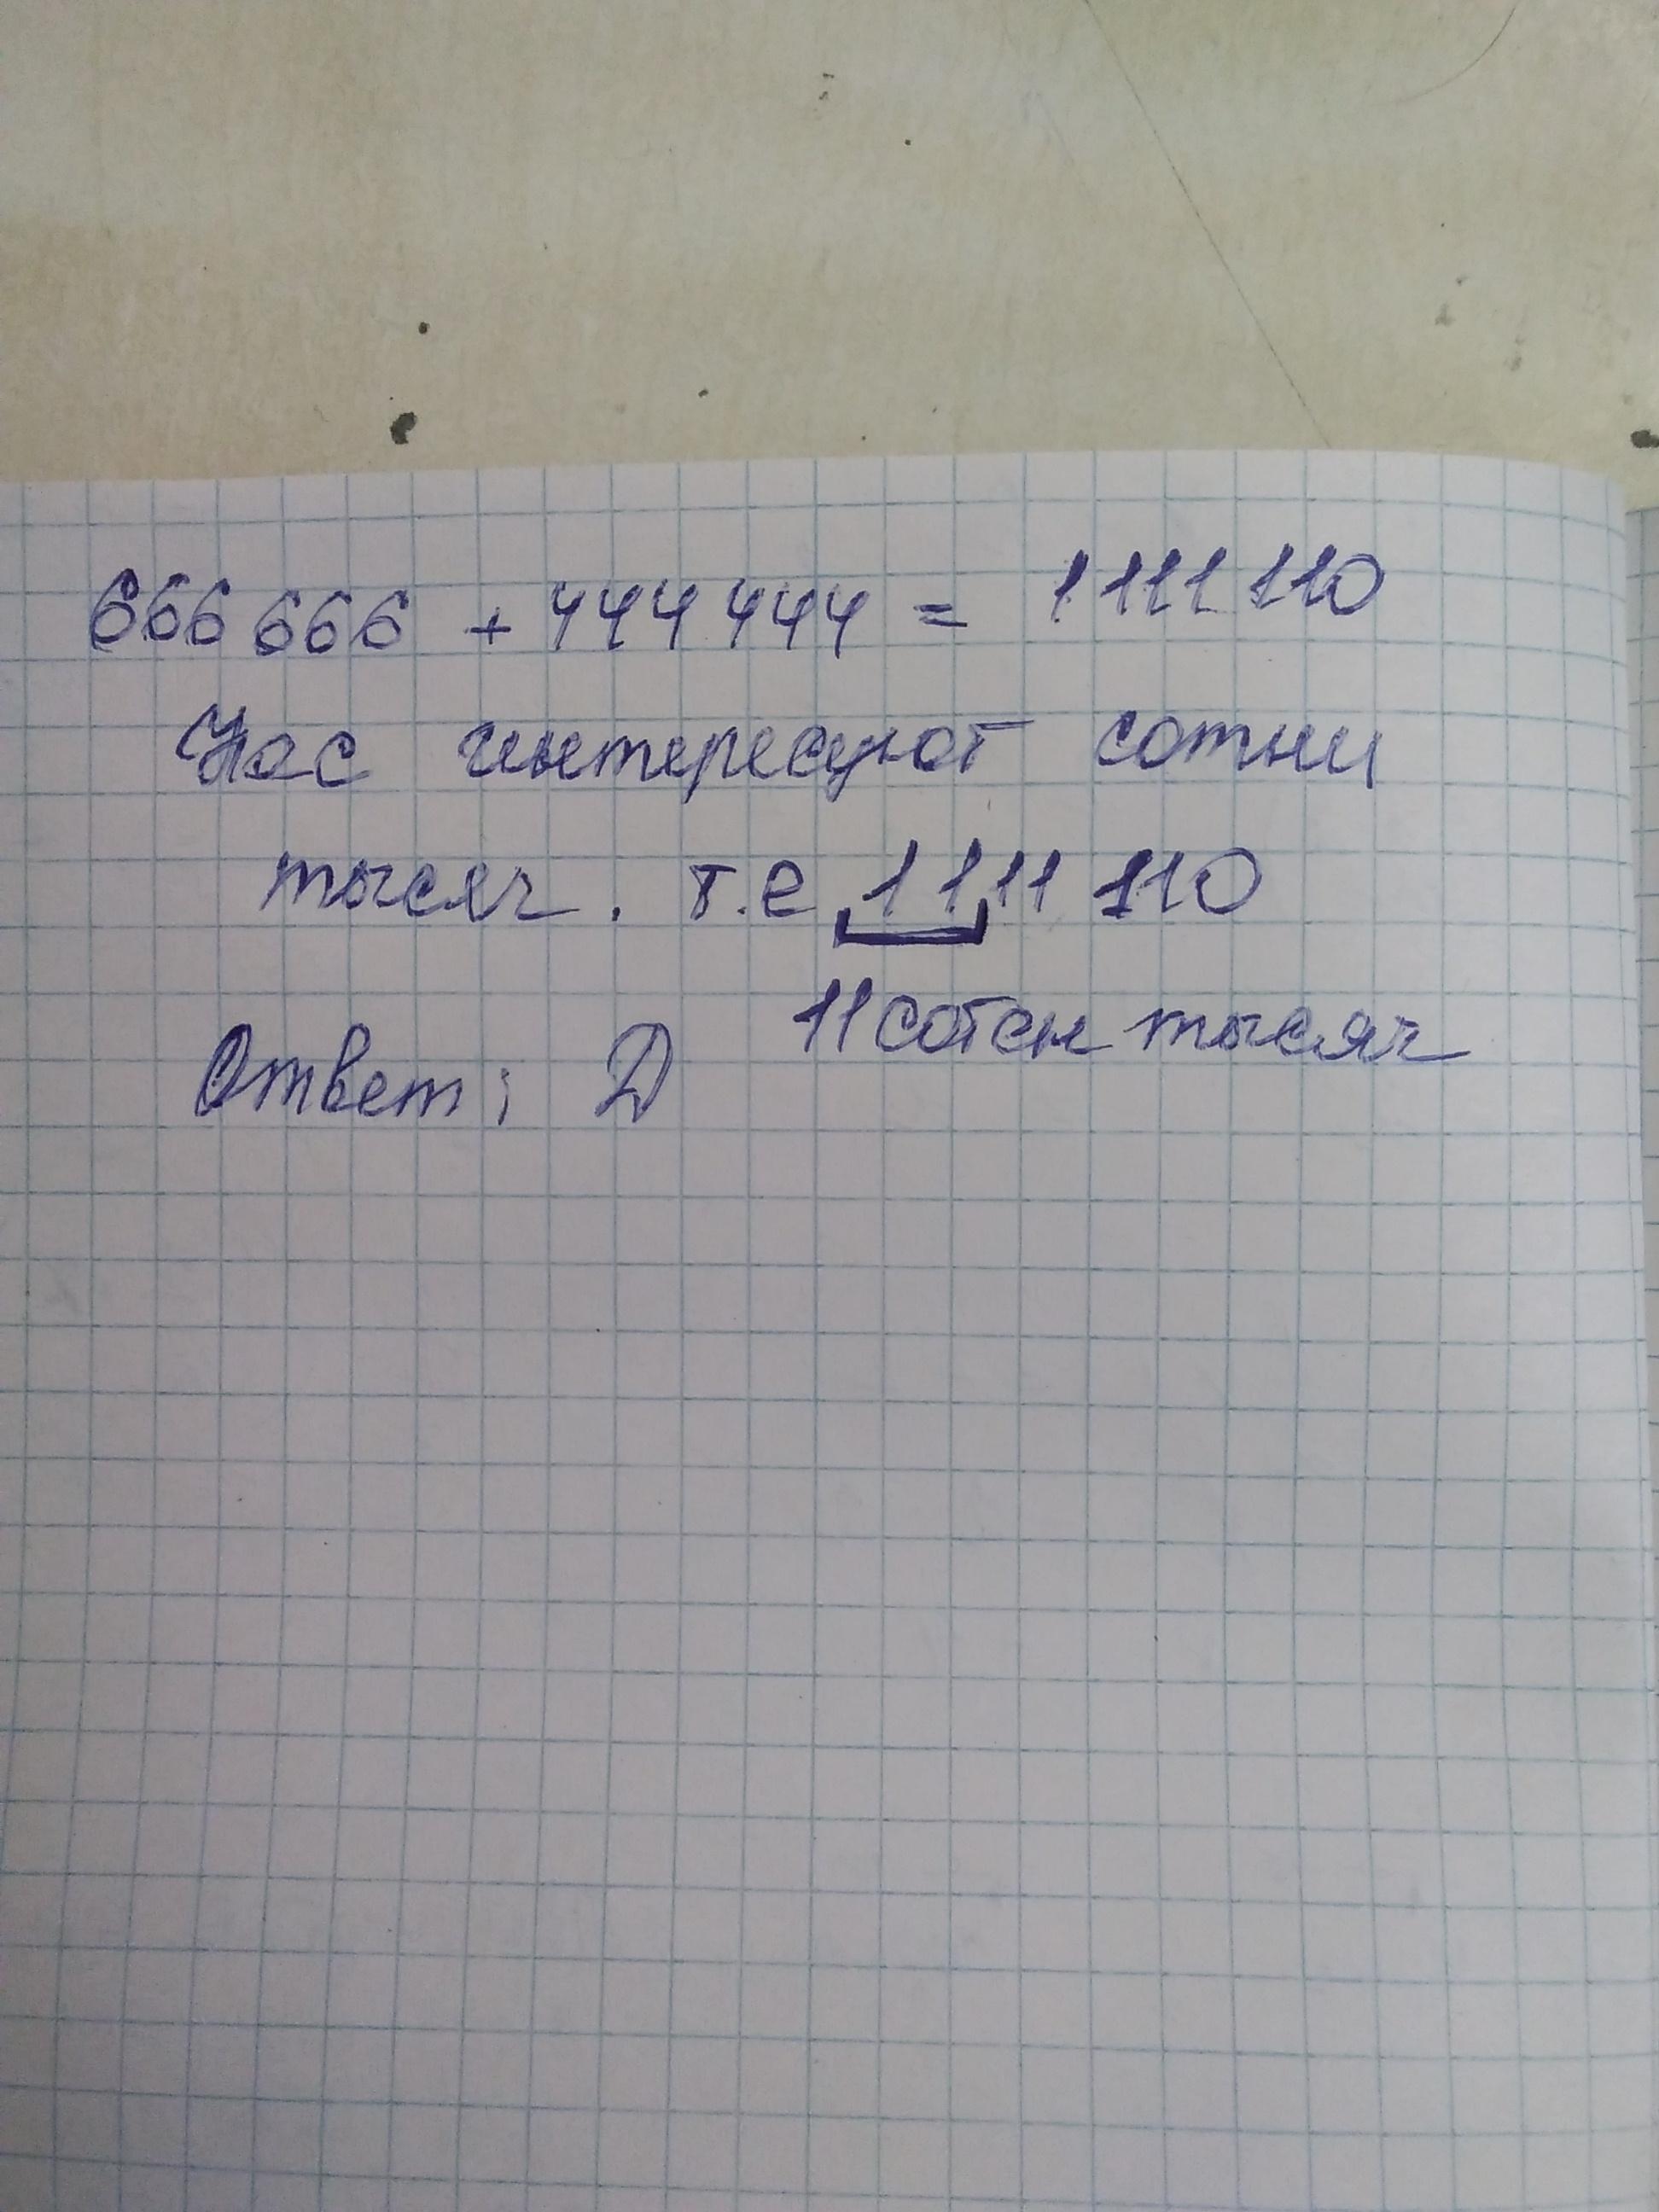 666 666 + 444 444 = 1 111 110
Нас интересуют сотни
тысяч. т.е 1 1 11 110
11 сотен тысяч
Ответ: Д